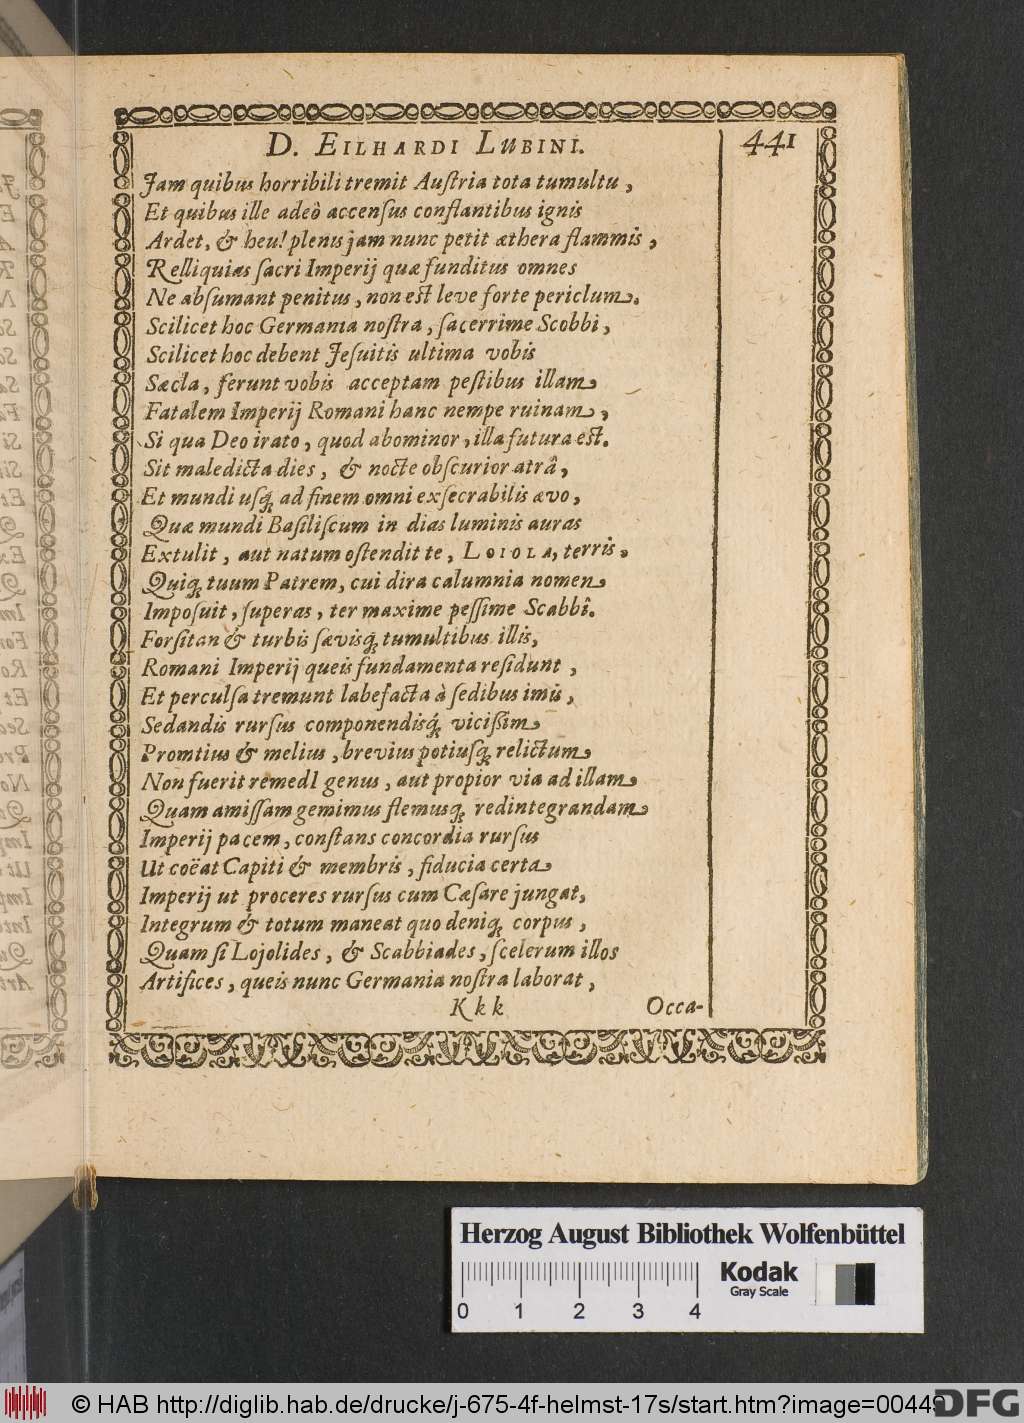 D. EILHARDI LUBINI. 441
Jam quibus horribili tremit Auſtria tota tumultu,
Et quibus ille adeò accenſus conflantibus ignis
Ardet, & heu! plenis jam nunc petit æthera flammis,
Relliquias ſacri Imperij quæ funditus omnes
Ne abſumant penitus, non eſt leve forte periclum.
Scilicet hoc Germania noſtra, ſacerrime Scobbi,
Scilicet hoc debent Jeſuitis ultima vobis
Sæcla, ferunt vobis acceptam peſtibus illam
Fatalem Imperij Romani hanc nempe ruinam,
Si qua Deo irato, quod abominor, illa futura eſt.
Sit maledicta dies, & nocte obſcurior atrâ,
Et mundi uſq; ad finem omni exſecrabilis ævo,
Quæ mundi Baſiliſcum in dias luminis auras
Extulit, aut natum oſtendit te, LOIOLA, terris.
Quiq; tuum Patrem, cui dira calumnia nomen
Impoſuit, ſuperas, ter maxime peſſime Scabbî.
Forſitan & turbis ſævisq; tumultibus illis,
Romani Imperij queis fundamenta reſidunt,
Et perculſa tremunt labefacta à ſedibus imis,
Sedandis rurſus componendisq; viciſſim
Promtius & melius, brevius potiuſq; relictum
Non fuerit remedI genus, aut propior via ad illam
Quam amiſſam gemimus flemusq; redintegrandam
Imperij pacem, conſtans concordia rurſus
Ut coëat Capiti & membris, fiducia certa
Imperij ut proceres rurſus cum Cæſare jungat,
Integrum & totum maneat quo deniq; corpus,
Quam ſi Lojolides, & Scabbiades, ſcelerum illos
Artifices, queis nunc Germania noſtra laborat,
Kkk Occa-
Herzog August Bibliothek Wolfenbüttel
Kodak
Gray Scale
0 1 2 3 4
© HAB http://diglib.hab.de/drucke/j-675-4f-helmst-17s/start.htm?image=00449
DFG